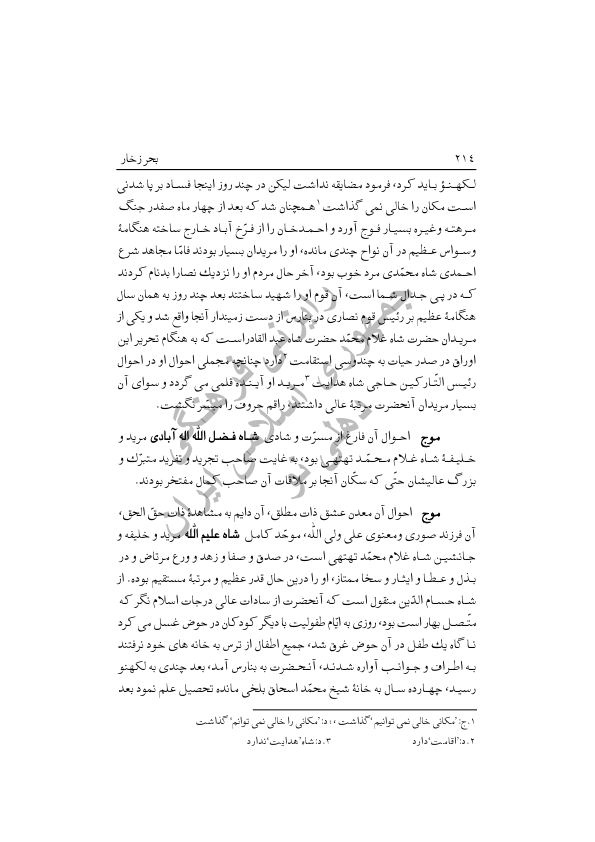 ۲۱٤ بحر زخار
لـکهـنـؤ بـاید کـرد، فرمود مضایقه نداشت لیکن در چند روز اینجا فسـاد بر پا شدنی
اسـت مکان را خالی نمی گذاشت۱ همچنان شد که بعد از چهار ماه صفدر جنگ
مـرهتـه وغیـره بسیـار فـوج آورد و احـمـدخـان را از فـرّخ آبـاد خـارج ساخته هنگامۀ
وسـواس عـظیم در آن نواح چندی مانده، او را مریدان بسیار بودند فامّا مجاهد شرع
احـمدی شاه محمّدی مرد خوب بود، آخر حال مردم او را نزدیك نصارا بدنام کردند
کـه در پـی جـدال شـما است، آن قوم او را شهید ساختند بعد چند روز به همان سال
هنگامۀ عظیم بر رئیس قوم نصاری در بنارس از دست زمیندار آنجا واقع شد و یکی از
مـریـدان حضرت شاه غلام محمّد حضرت شاه عبد القادراسـت که به هنگام تحریر این
اوراق در صدر حیات به چندوسی استقامت۲ دارد چنانچه مجملی احوال او در احوال
رئیـس التّـارکیـن حـاجی شاه هدایت۳ مـریـد او آیـنـده قلمی می گردد و سوای آن
بسیار مریدان آنحضرت مرتبۀ عالی داشتند، راقم حروف را میسّر نگشت.
موج احـوال آن فارغ از مسـرّت و شادی شـاه فـضـل الله اله آبـادی مرید و
خـلیـفـۀ شـاه غـلام مـحـمّـد تهتهـی بود، به غایت صاحب تجرید و تفرید متبرّك و
بزرگ عالیشان حتّی که سکّان آنجا بر ملاقات آن صاحب کمال مفتخر بودند.
موج احوال آن معدن عشق ذات مطلق، آن دایم به مشاهدۀ ذات حقّ الحق،
آن فرزند صوری ومعنوی علی ولی الله، مـوحّد کامـل شاه علیم الله مرید و خلیفه و
جـانشیـن شـاه غلام محمّد تهتهی است، در صدق و صفا و زهد و ورع مرتاض و در
بـذل و عـطـا و ایثـار و سخا ممتاز، او را درین حال قدر عظیم و مرتبۀ مستقیم بوده. از
شـاه حسـام الدّین منقول است که آنحضرت از سادات عالی درجات اسلام نگر که
متّـصـل بهار است بود، روزی به ایّام طفولیت با دیگر کودکان در حوض غسل می کرد
نـا گاه یك طفل در آن حوض غرق شد، جمیع اطفال از ترس به خانه های خود نرفتند
بـه اطـراف و جـوانـب آواره شـدنـد، آنـحـضرت به بنارس آمد، بعد چندی به لکهنو
رسیـد، چهـارده سـال به خانۀ شیخ محمّد اسحاق بلخی مانده تحصیل علم نمود بعد
۱. ج: ’مکانی خالی نمی توانیم‘ گذاشت ، : د: ’مکانی را خالی نمی توانم‘ گذاشت
۲. د: ’اقامت‘ دارد ۳. د: شاه ’هدایت‘ ندارد
رایزنی فرهنگی
جمهوری اسلامی ایران
دهلی نو